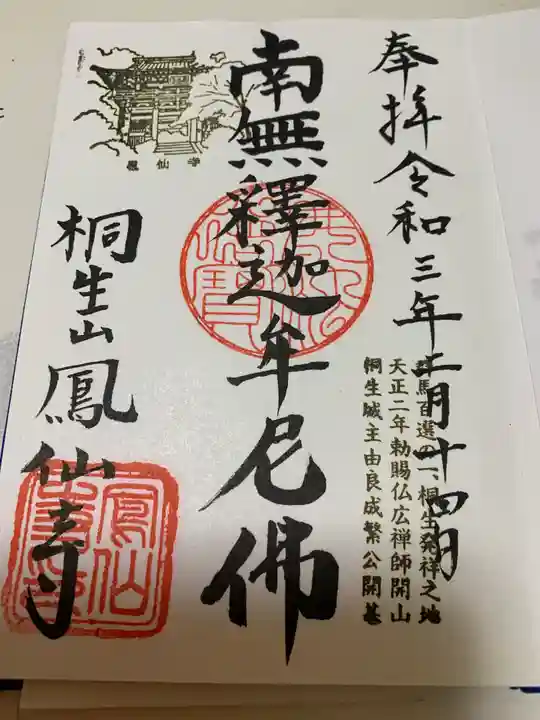 奉拝令和三年二月十四日
馬百選の一、桐生発祥之地
天正二年勅賜仏広禅師開山
桐生城主由良成繁公開基
南無釋迦牟尼佛
鳳仙寺
桐生山鳳仙寺